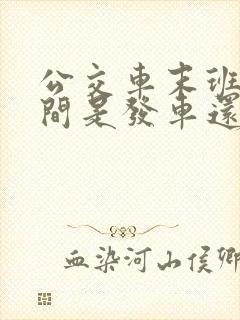 公交車末班
間是發車還
血染河山侯卿